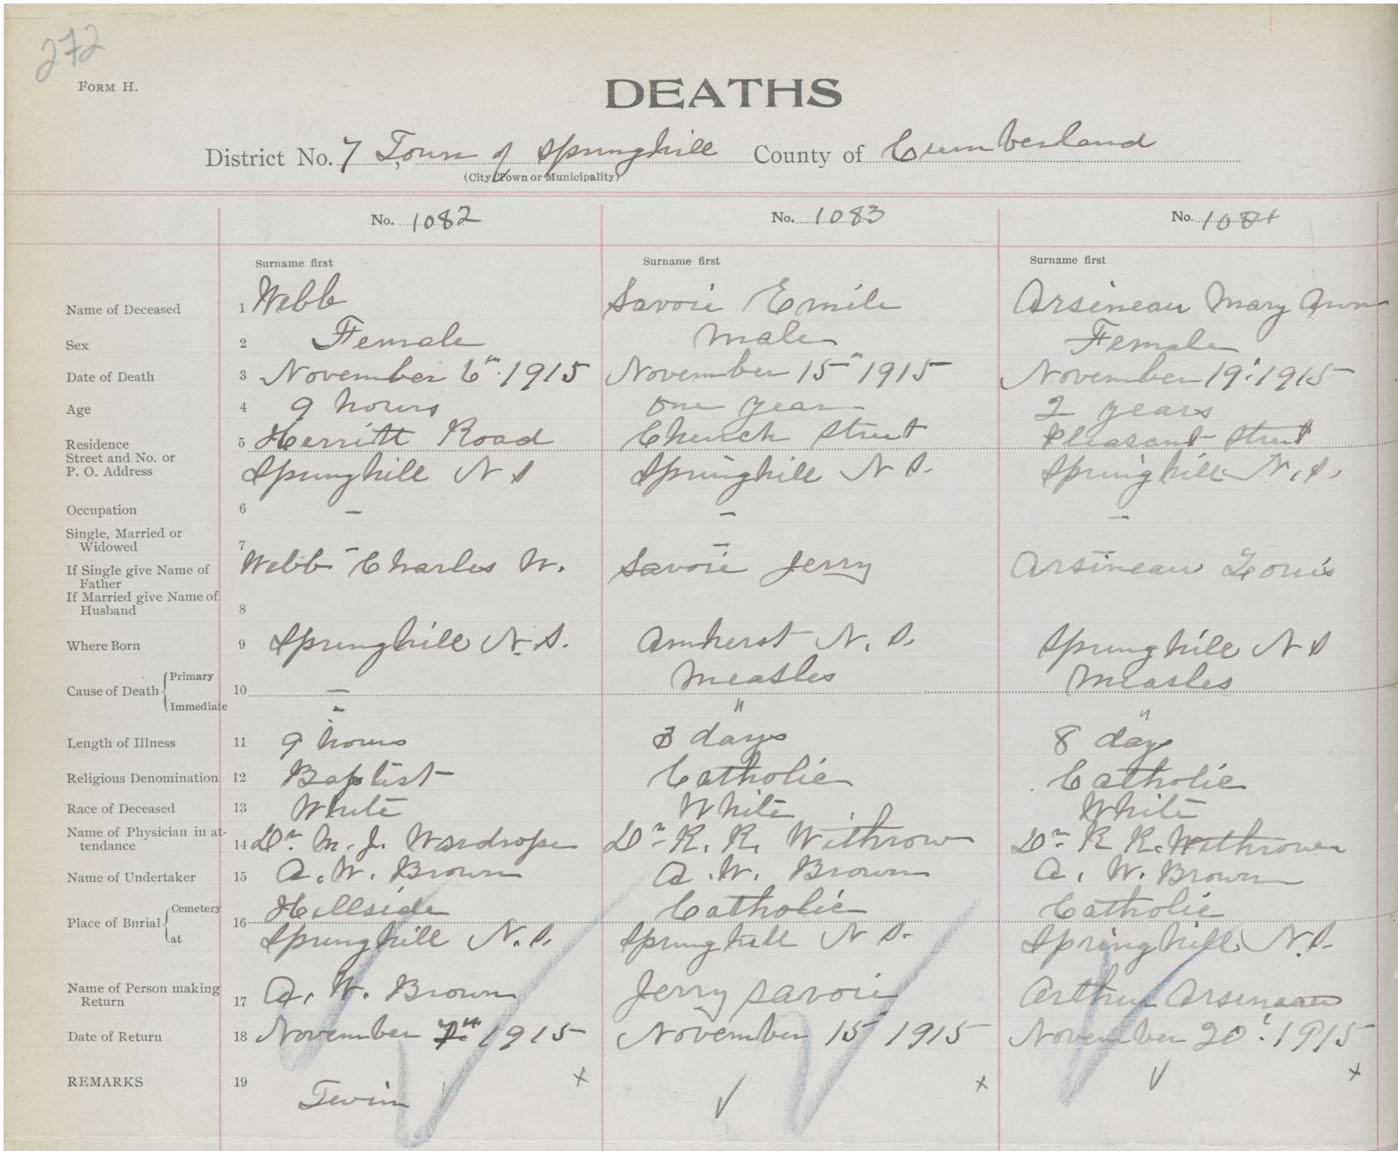 272
FORM H.
DEATHS
District No. 7 Town of Springhill County of Cumberland
(City, Town or Municipality)
No. 1082 No. 1083 No. 1084
Surname first Surname first Surname first
Name of Deceased 1 Webb Savoie Emile Arsineau Mary Ann
Sex 2 Female Male Female
Date of Death 3 November 6th 1915 November 15" 1915 November 19" 1915
Age 4 9 hours one year 2 years
Residence Street and No. or P. O. Address 5 Herritt Road Church Street Pleasant Street
Springhill N S Springhill N S. Springhill N. S.
Occupation 6 – – –
Single, Married or Widowed 7 – –
If Single give Name of Father Webb Charles W. Savoie Jerry Arsineau Louis
If Married give Name of Husband 8
Where Born 9 Springhill N. S. Amherst N. S. Springhill N S
Cause of Death { Primary 10 – Measles Measles
Immediate " " "
Length of Illness 11 9 hours 8 days 8 days
Religious Denomination 12 Baptist Catholic Catholic
Race of Deceased 13 White White White
Name of Physician in attendance 14 Dr. M. J. Wardrope Dr R. R. Withrow Dr R R. Withrow
Name of Undertaker 15 A. W. Brown A. W. Brown A. W. Brown
Place of Burial { Cemetery 16 Hillside Catholic Catholic
at Springhill N. S. Springhill N S. Springhill N. S.
Name of Person making Return 17 A. W. Brown Jerry Savoie Arthur Arseneau
Date of Return 18 November 7th 1915 November 15 1915 November 20" 1915
REMARKS 19 Twin ✓ x ✓ x ✓ x